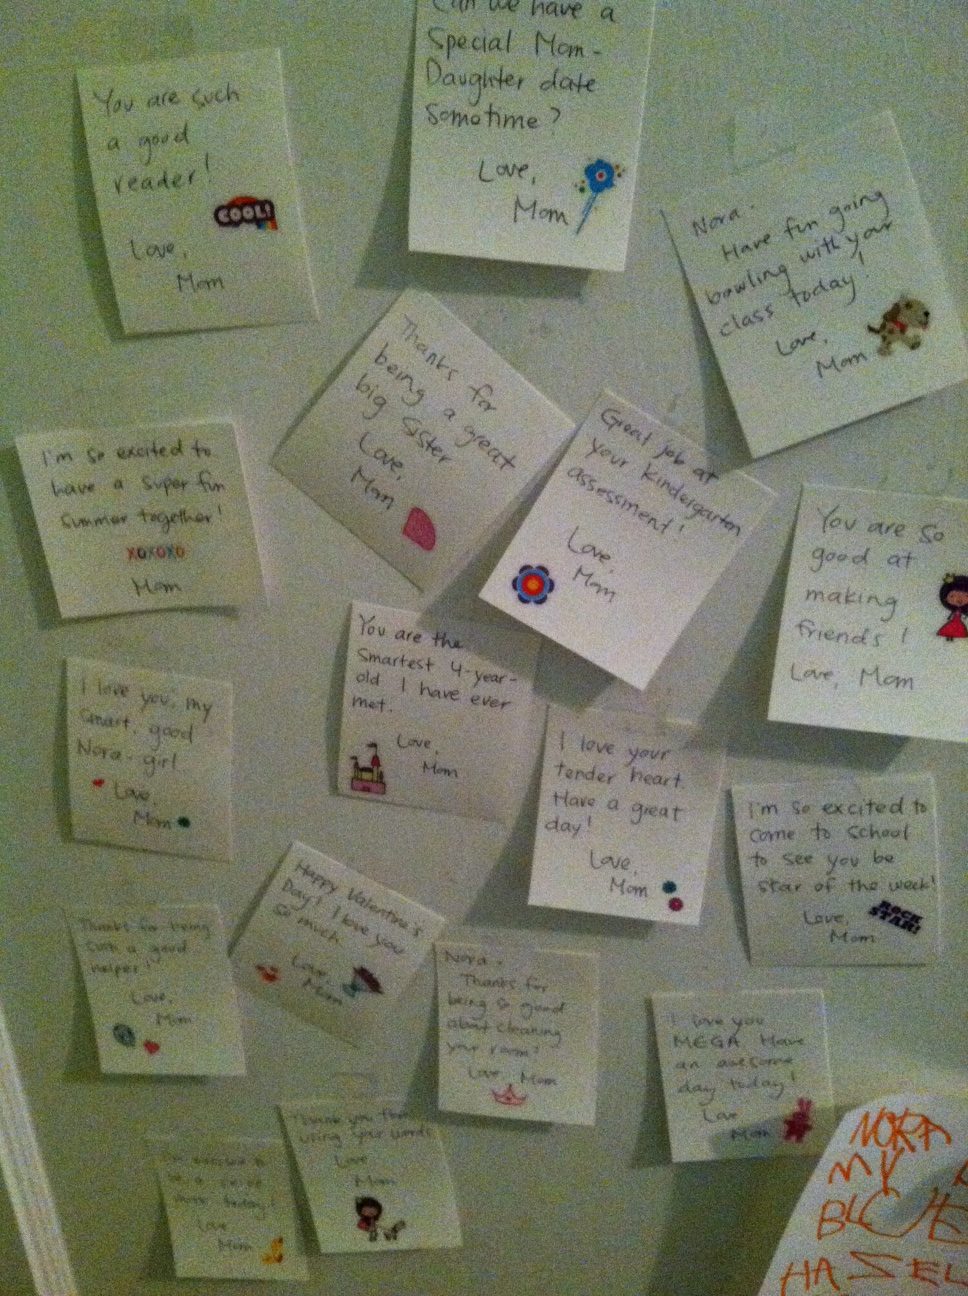 Can we have a
Special Mom-
Daughter date
sometime?
Love,
Mom
You are such
a good
reader!
COOL!
Love,
Mom
Nora-
Have fun going
bowling with your
class today!
Love,
Mom
Thanks for
being a great
big sister
Love,
Mom
Great job at
your kindergarten
assessment!
Love,
Mom
I'm so excited to
have a super fun
summer together!
XOXOXO
Mom
You are so
good at
making
friends!
Love, Mom
You are the
smartest 4-year-
old I have ever
met.
Love,
Mom
I love you, my
smart, good
Nora-girl.
Love,
Mom
I love your
tender heart.
Have a great
day!
Love,
Mom
I'm so excited to
come to school
to see you be
star of the week!
ROCK
STAR!
Love,
Mom
Happy Valentine's
Day! I love you
so much
Love,
Mom
Thanks for being
such a good
helper!
Love,
Mom
Nora-
Thanks for
being so good
about cleaning
your room!
Love, Mom
I love you
MEGA. Have
an awesome
day today!
Love
Mom
Thank you for
using your words
Love
Mom
today!
Love
Mom
NORA
MY
HAZEL